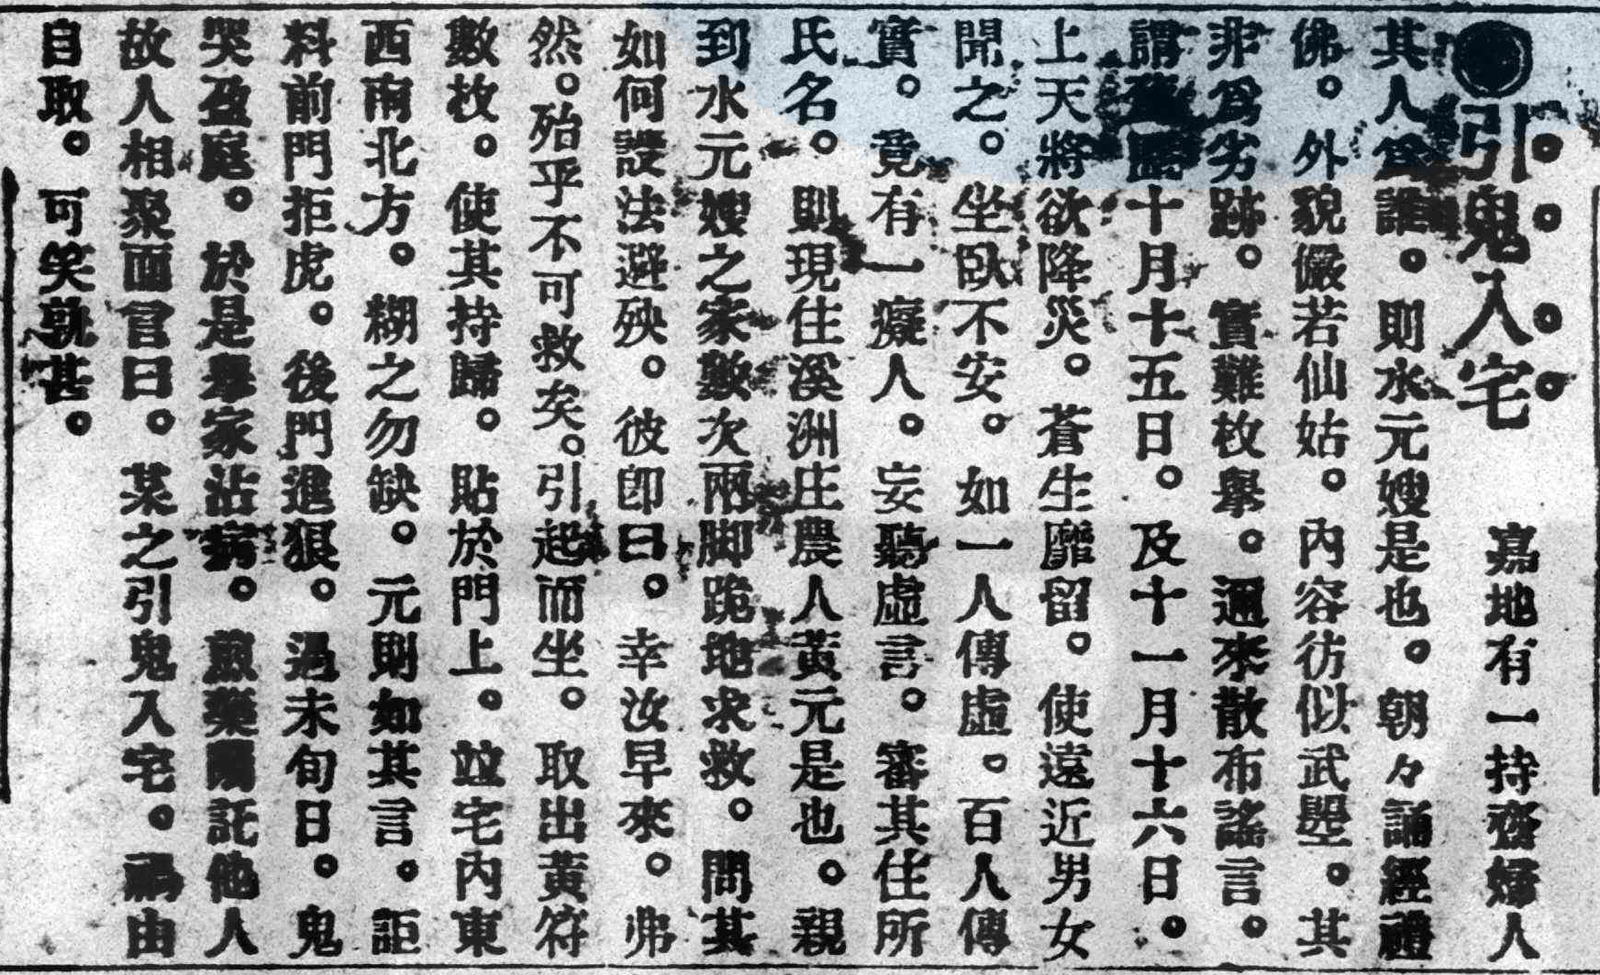 ●引鬼入宅　嘉地有一持齋婦人
其人爲誰。則水元嫂是也。朝々誦經禮
佛。外貌儼若仙姑。內容彷似武曌。其
非爲劣跡。實難枚舉。邇來散布謠言。
謂舊曆十月十五日。及十一月十六日。
上天將欲降災。蒼生靡留。使遠近男女
聞之。坐臥不安。如一人傳虛。百人傳
實。竟有一癡人。妄聽虛言。審其住所
氏名。則現住溪洲庄農人黃元是也。親
到水元嫂之家數次兩脚跪地求救。問其
如何設法避殃。彼卽曰。幸汝早來。弗
然。殆乎不可救矣。引起而坐。取出黃符
數枚。使其持歸。貼於門上。竝宅內東
西南北方。糊之勿缺。元則如其言。詎
料前門拒虎。後門進狼。過未旬日。鬼
哭盈庭。於是舉家沾病。煎藥囑託他人
故人相聚而言曰。某之引鬼入宅。禍由
自取。可笑孰甚。